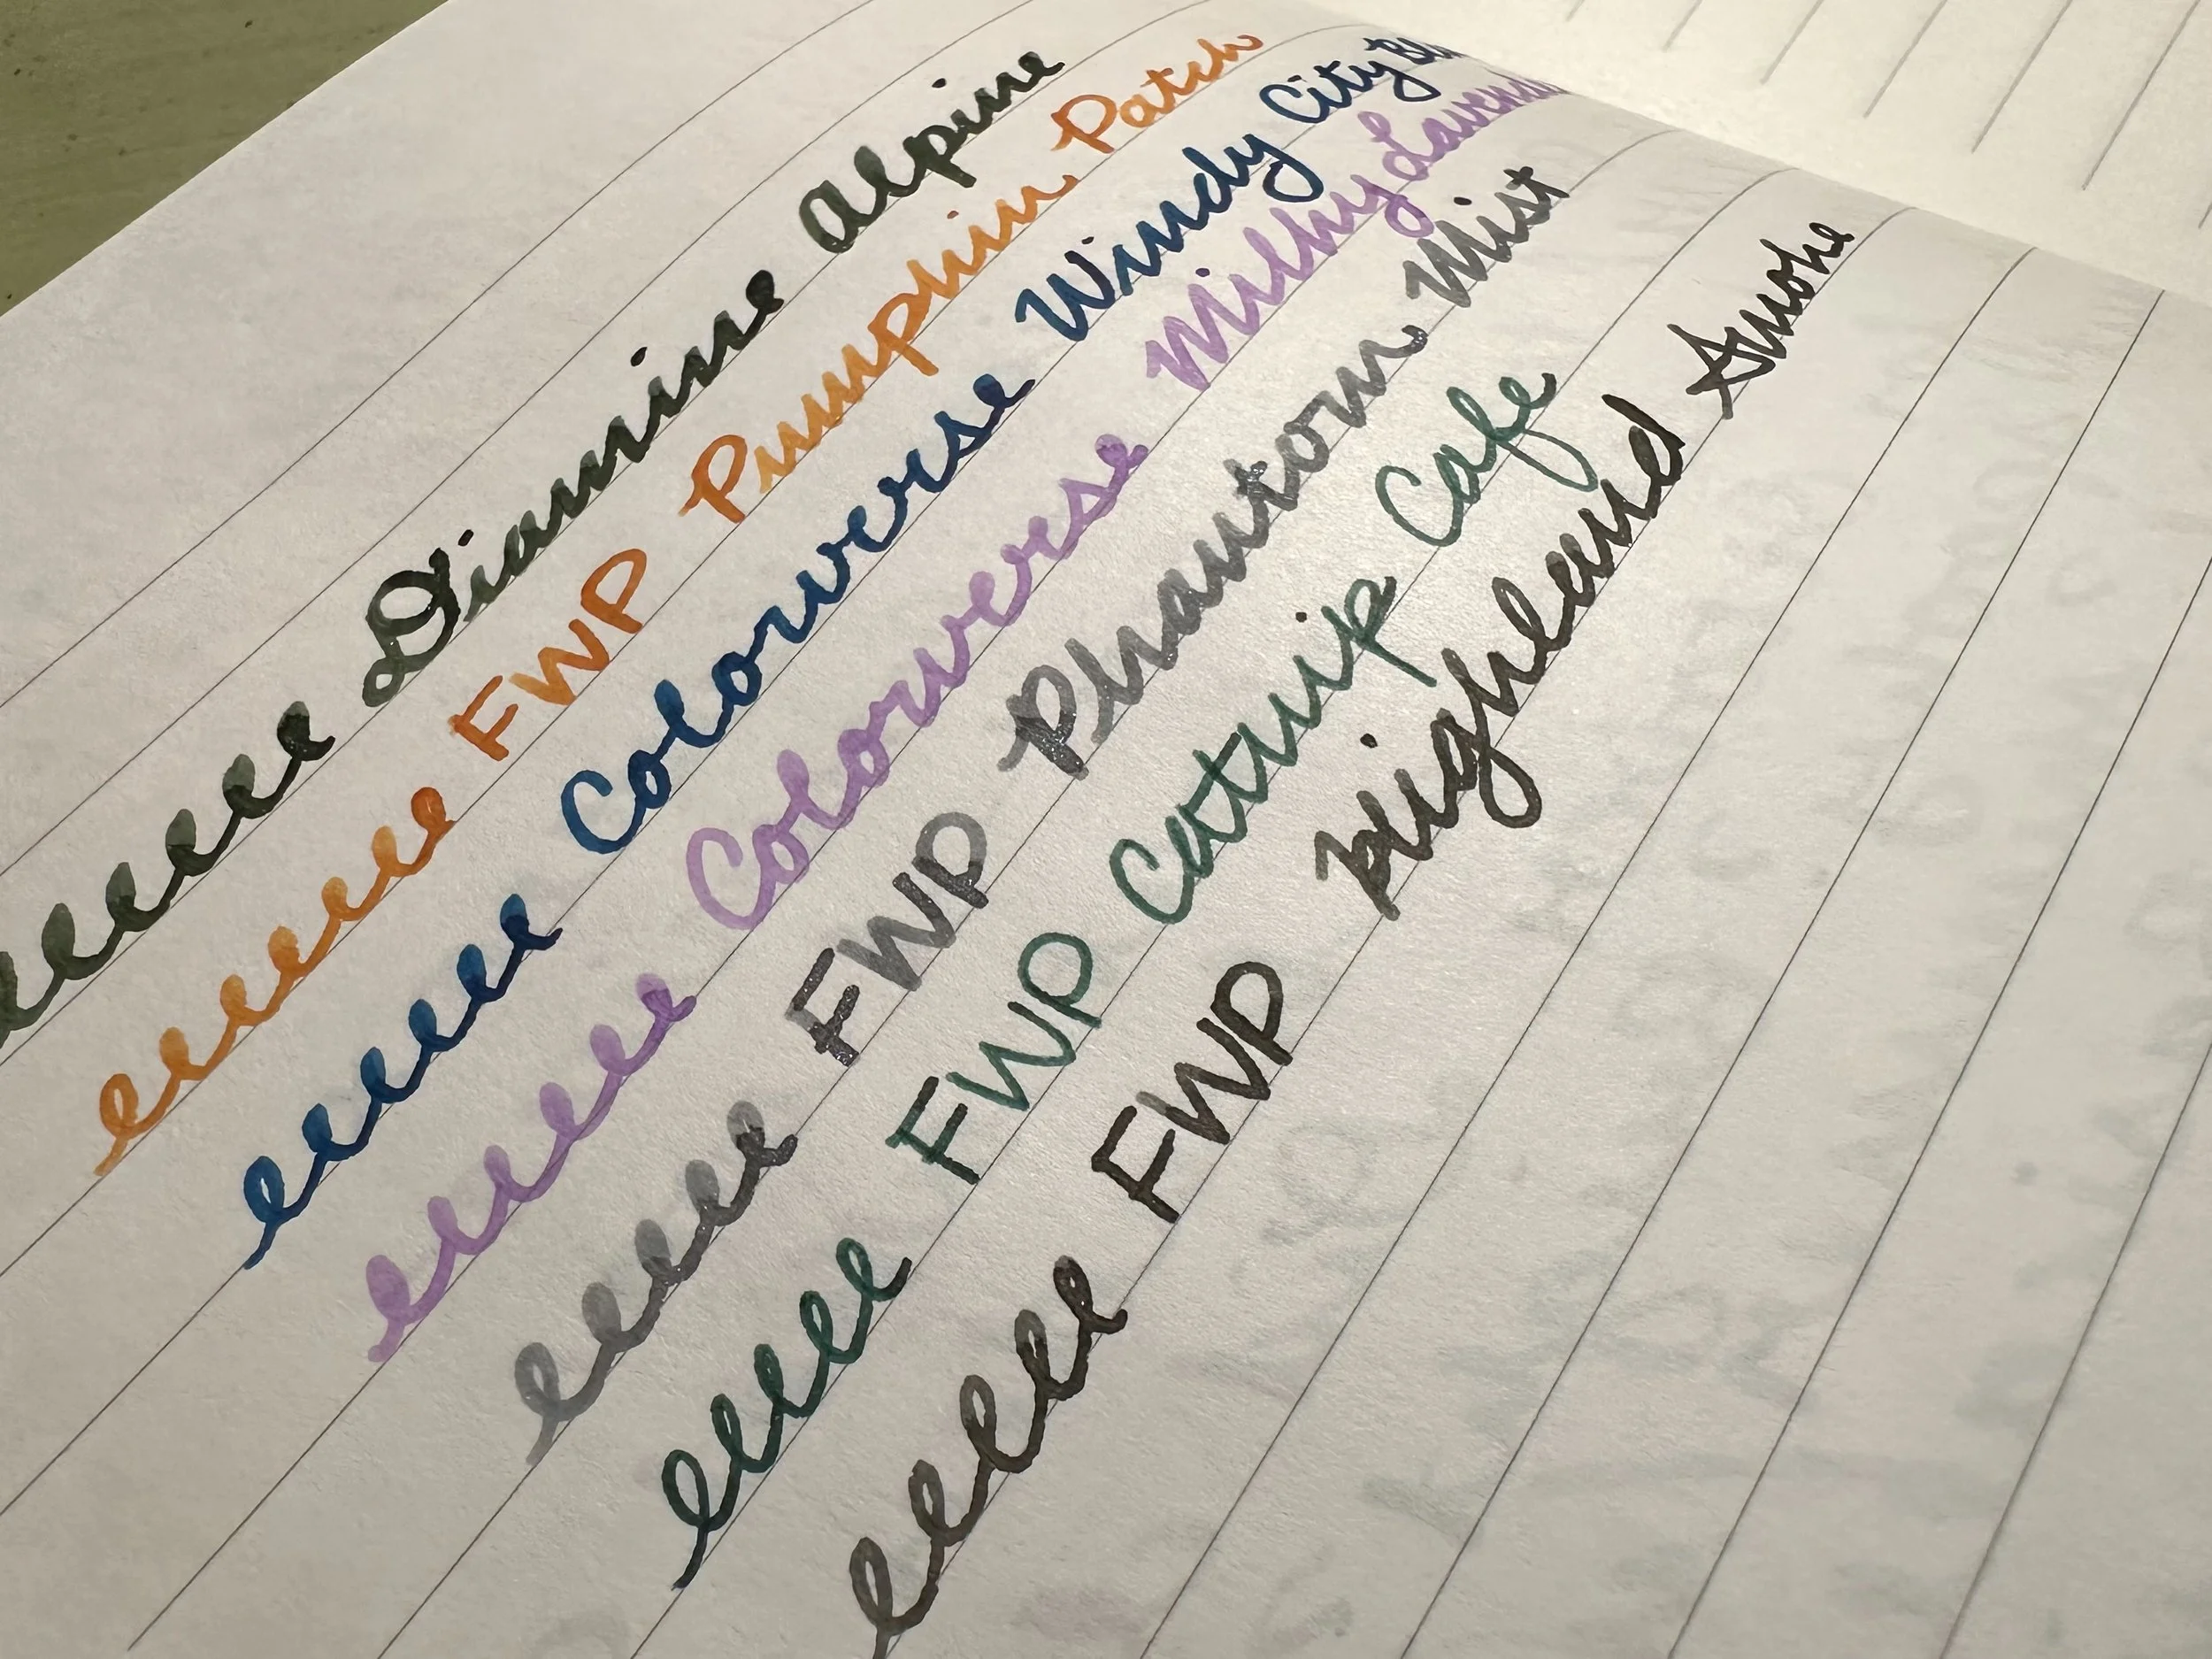 eeeeee Diamine Alpine
eeeeee FWP Pumpkin Patch
eeeee Coloverse Windy City
eeeee Colorverse Milky
eeee FWP Phantom Mist
eeee FWP Catnip Cafe
eeee FWP Highland Smoke